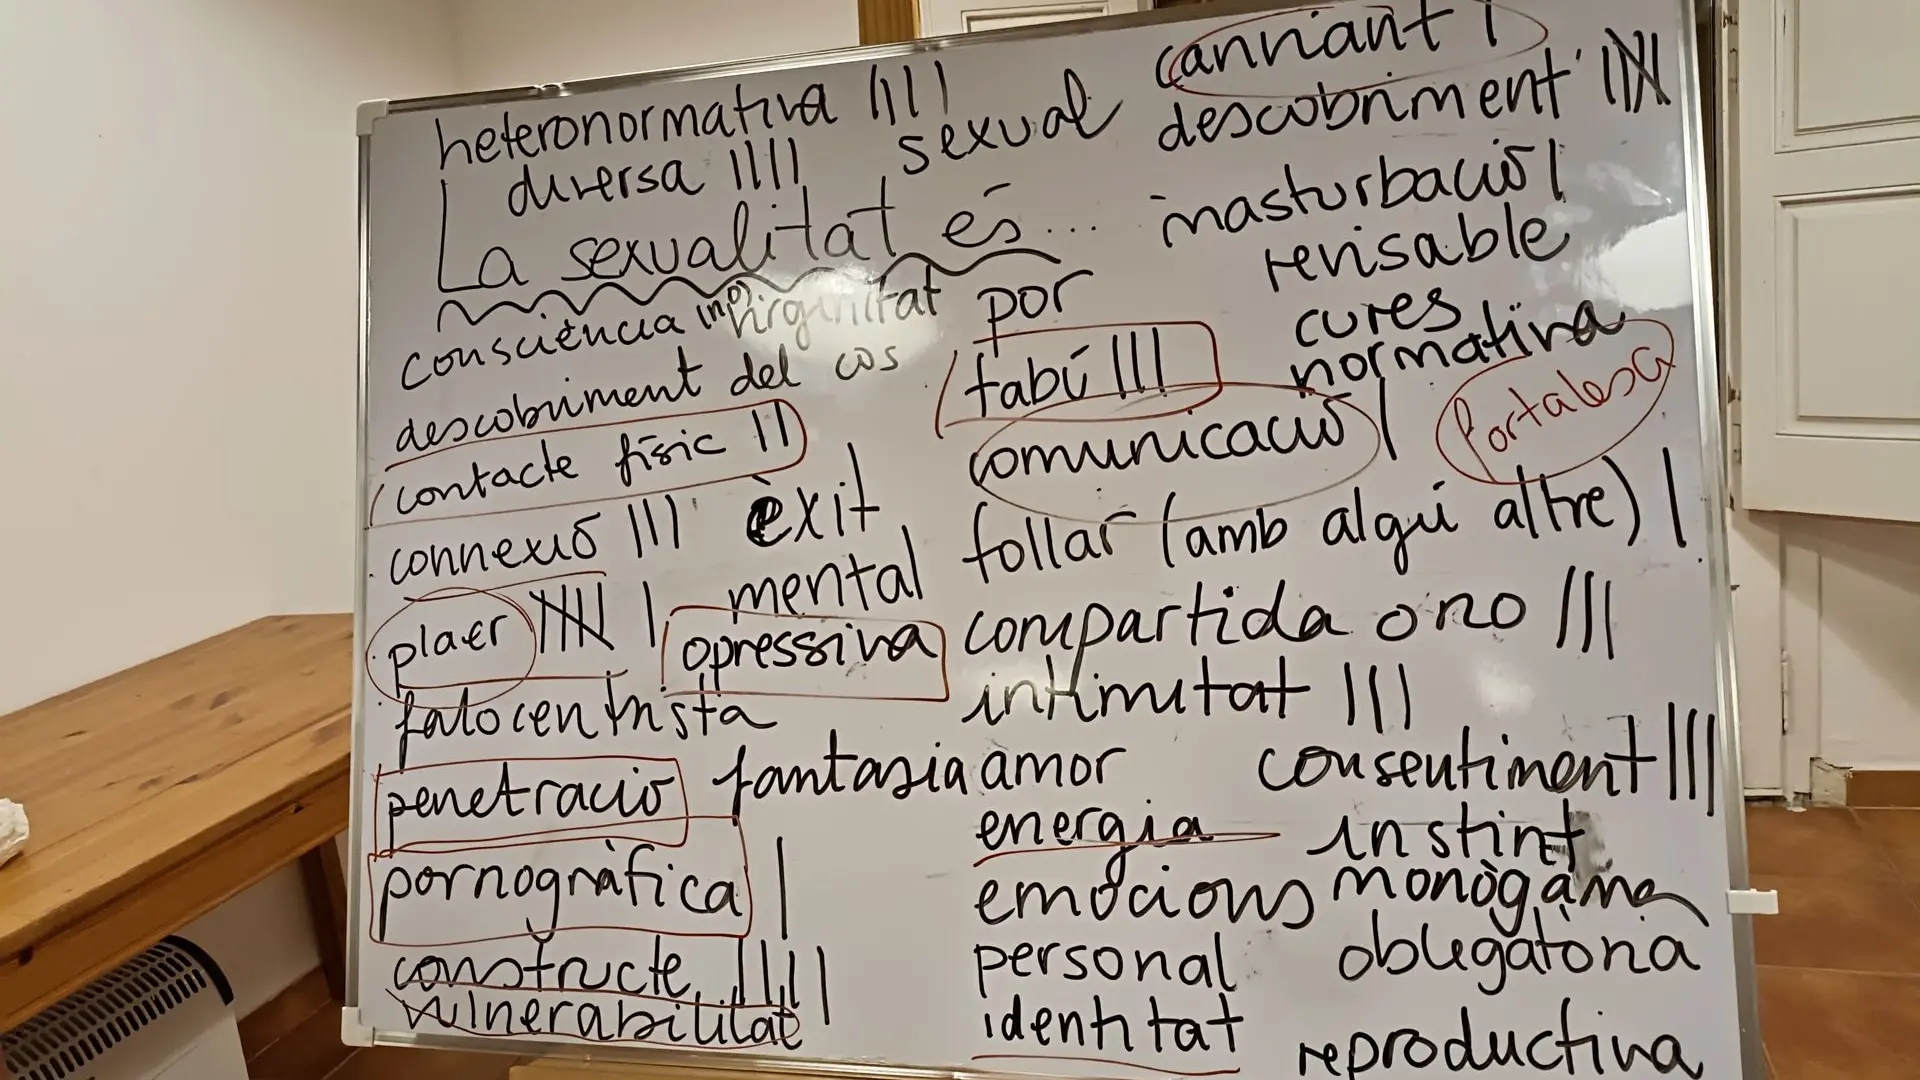 canviant |
heteronormativa ||||
sexual
descobriment ||||
diversa ||||
masturbació |
La sexualitat és...
revisable
consciència
(no) virginitat
por
cures
descobriment del cos
tabú |||
normativa
contacte físic ||
comunicació |
fortalesa
connexió |||
èxit
follar (amb algú altre) |
mental
plaer |||| |
opressiva
compartida o no |||
falocentrista
intimitat |||
penetració
fantasia
amor
consentiment |||
energia
instint
pornogràfica |
emocions
monògama
constructe |||||
personal
obligatòria
vulnerabilitat
identitat
reproductiva